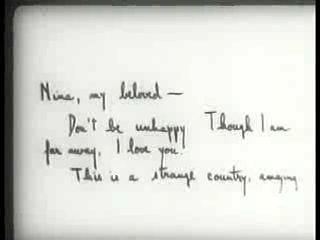 Nina, my beloved —
Don't be unhappy Though I am
far away, I love you.
This is a strange country, amazing